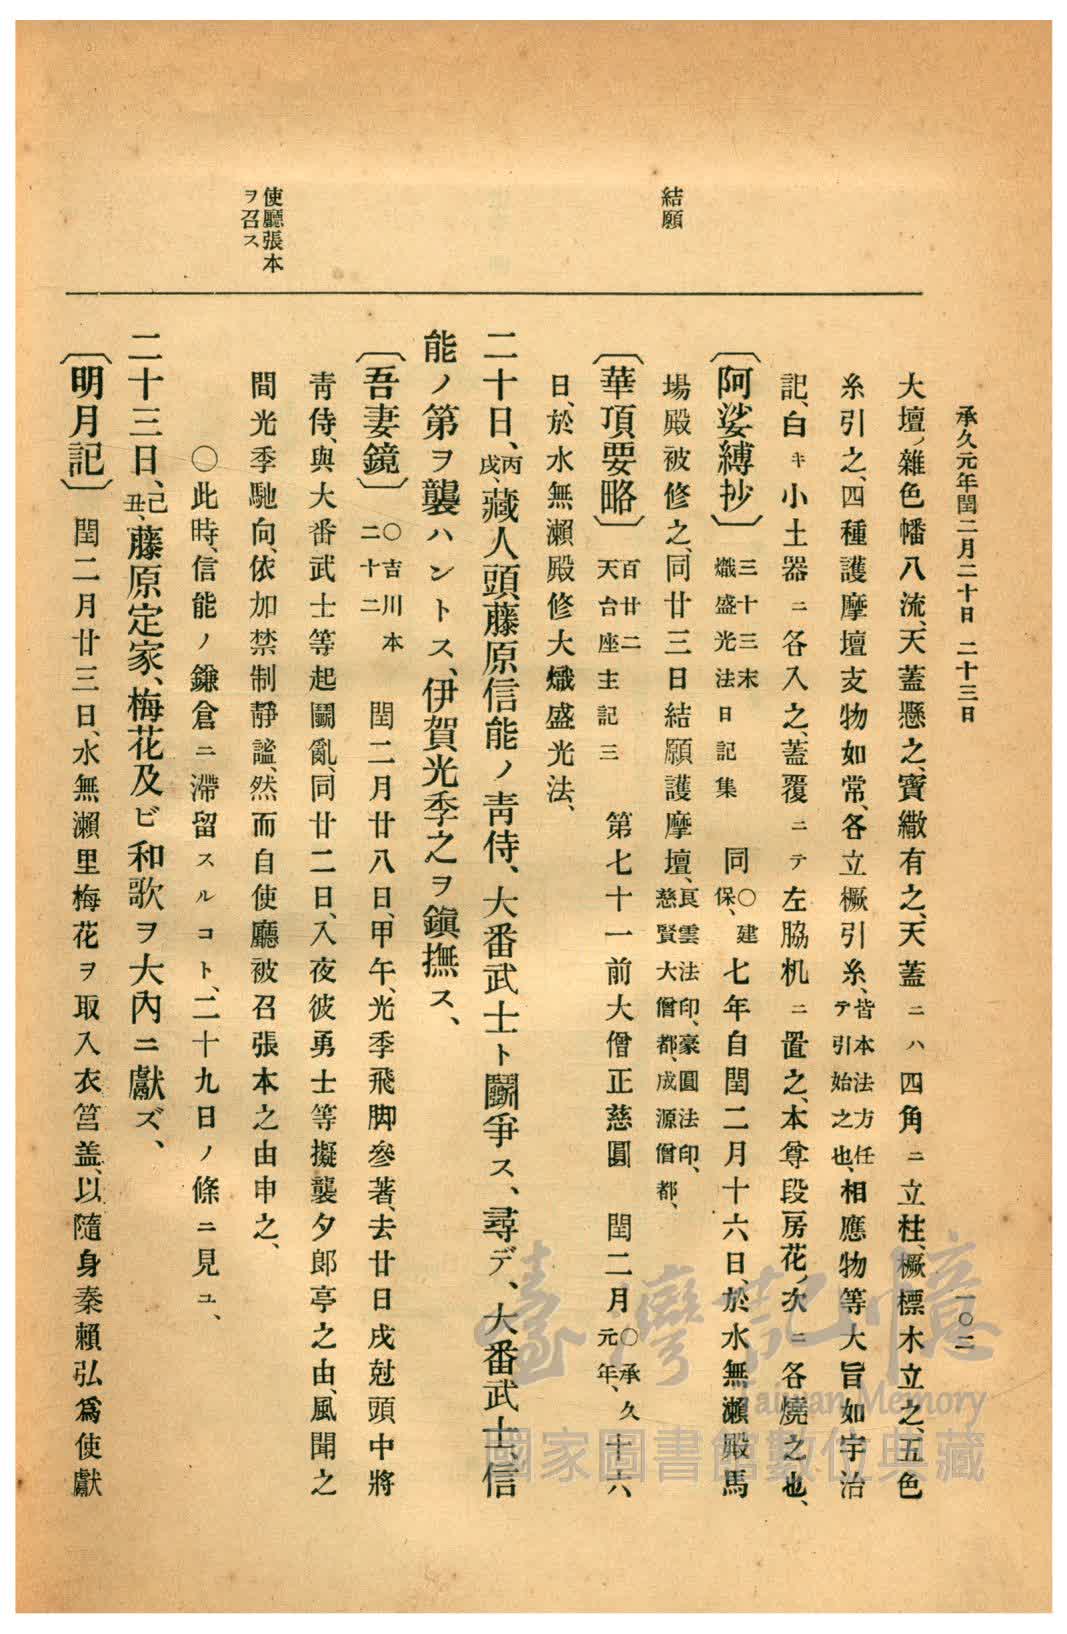 承久元年閏二月二十日 二十三日
一〇二
大壇ノ雜色幡八流、天蓋懸之、寶繖有之、天蓋ニハ四角ニ立柱、橛標木立之、五色
糸引之、四種護摩壇支物如常、各立橛引糸、皆本法方任テ引始之也、相應物等大旨如宇治
記、白キ小土器ニ各入之、蓋覆ニテ左脇机ニ置之、本尊段房花ノ次ニ各燒之也、
〔阿娑縛抄〕三十三末熾盛光法日記集 同〇建保、七年自閏二月十六日、於水無瀨殿馬
結願
場殿被修之、同廿三日結願護摩壇、良雲法印、豪圓法印、慈賢大僧都、成源僧都、
〔華頂要略〕百廿二天台座主記三 第七十一前大僧正慈圓 閏二月〇承久元年、十六
日、於水無瀨殿修大熾盛光法、
二十日、丙戌、藏人頭藤原信能ノ靑侍、大番武士ト鬪爭ス、尋デ、大番武士、信
能ノ第ヲ襲ハントス、伊賀光季之ヲ鎭撫ス、
〔吾妻鏡〕〇吉川本二十二 閏二月廿八日、甲午、光季飛脚參著、去廿日戌尅頭中將
靑侍、與大番武士等起鬪亂、同廿二日、入夜彼勇士等擬襲夕郎亭之由、風聞之
使廳張本
ヲ召ス
間光季馳向、依加禁制靜謐、然而自使廳被召張本之由申之、
〇此時、信能ノ鎌倉ニ滯留スルコト、二十九日ノ條ニ見ユ、
二十三日、己丑、藤原定家、梅花及ビ和歌ヲ大內ニ獻ズ、
〔明月記〕閏二月廿三日、水無瀨里梅花ヲ取入衣筥盖、以隨身秦賴弘爲使獻
臺灣記憶
Taiwan Memory
國家圖書館數位典藏